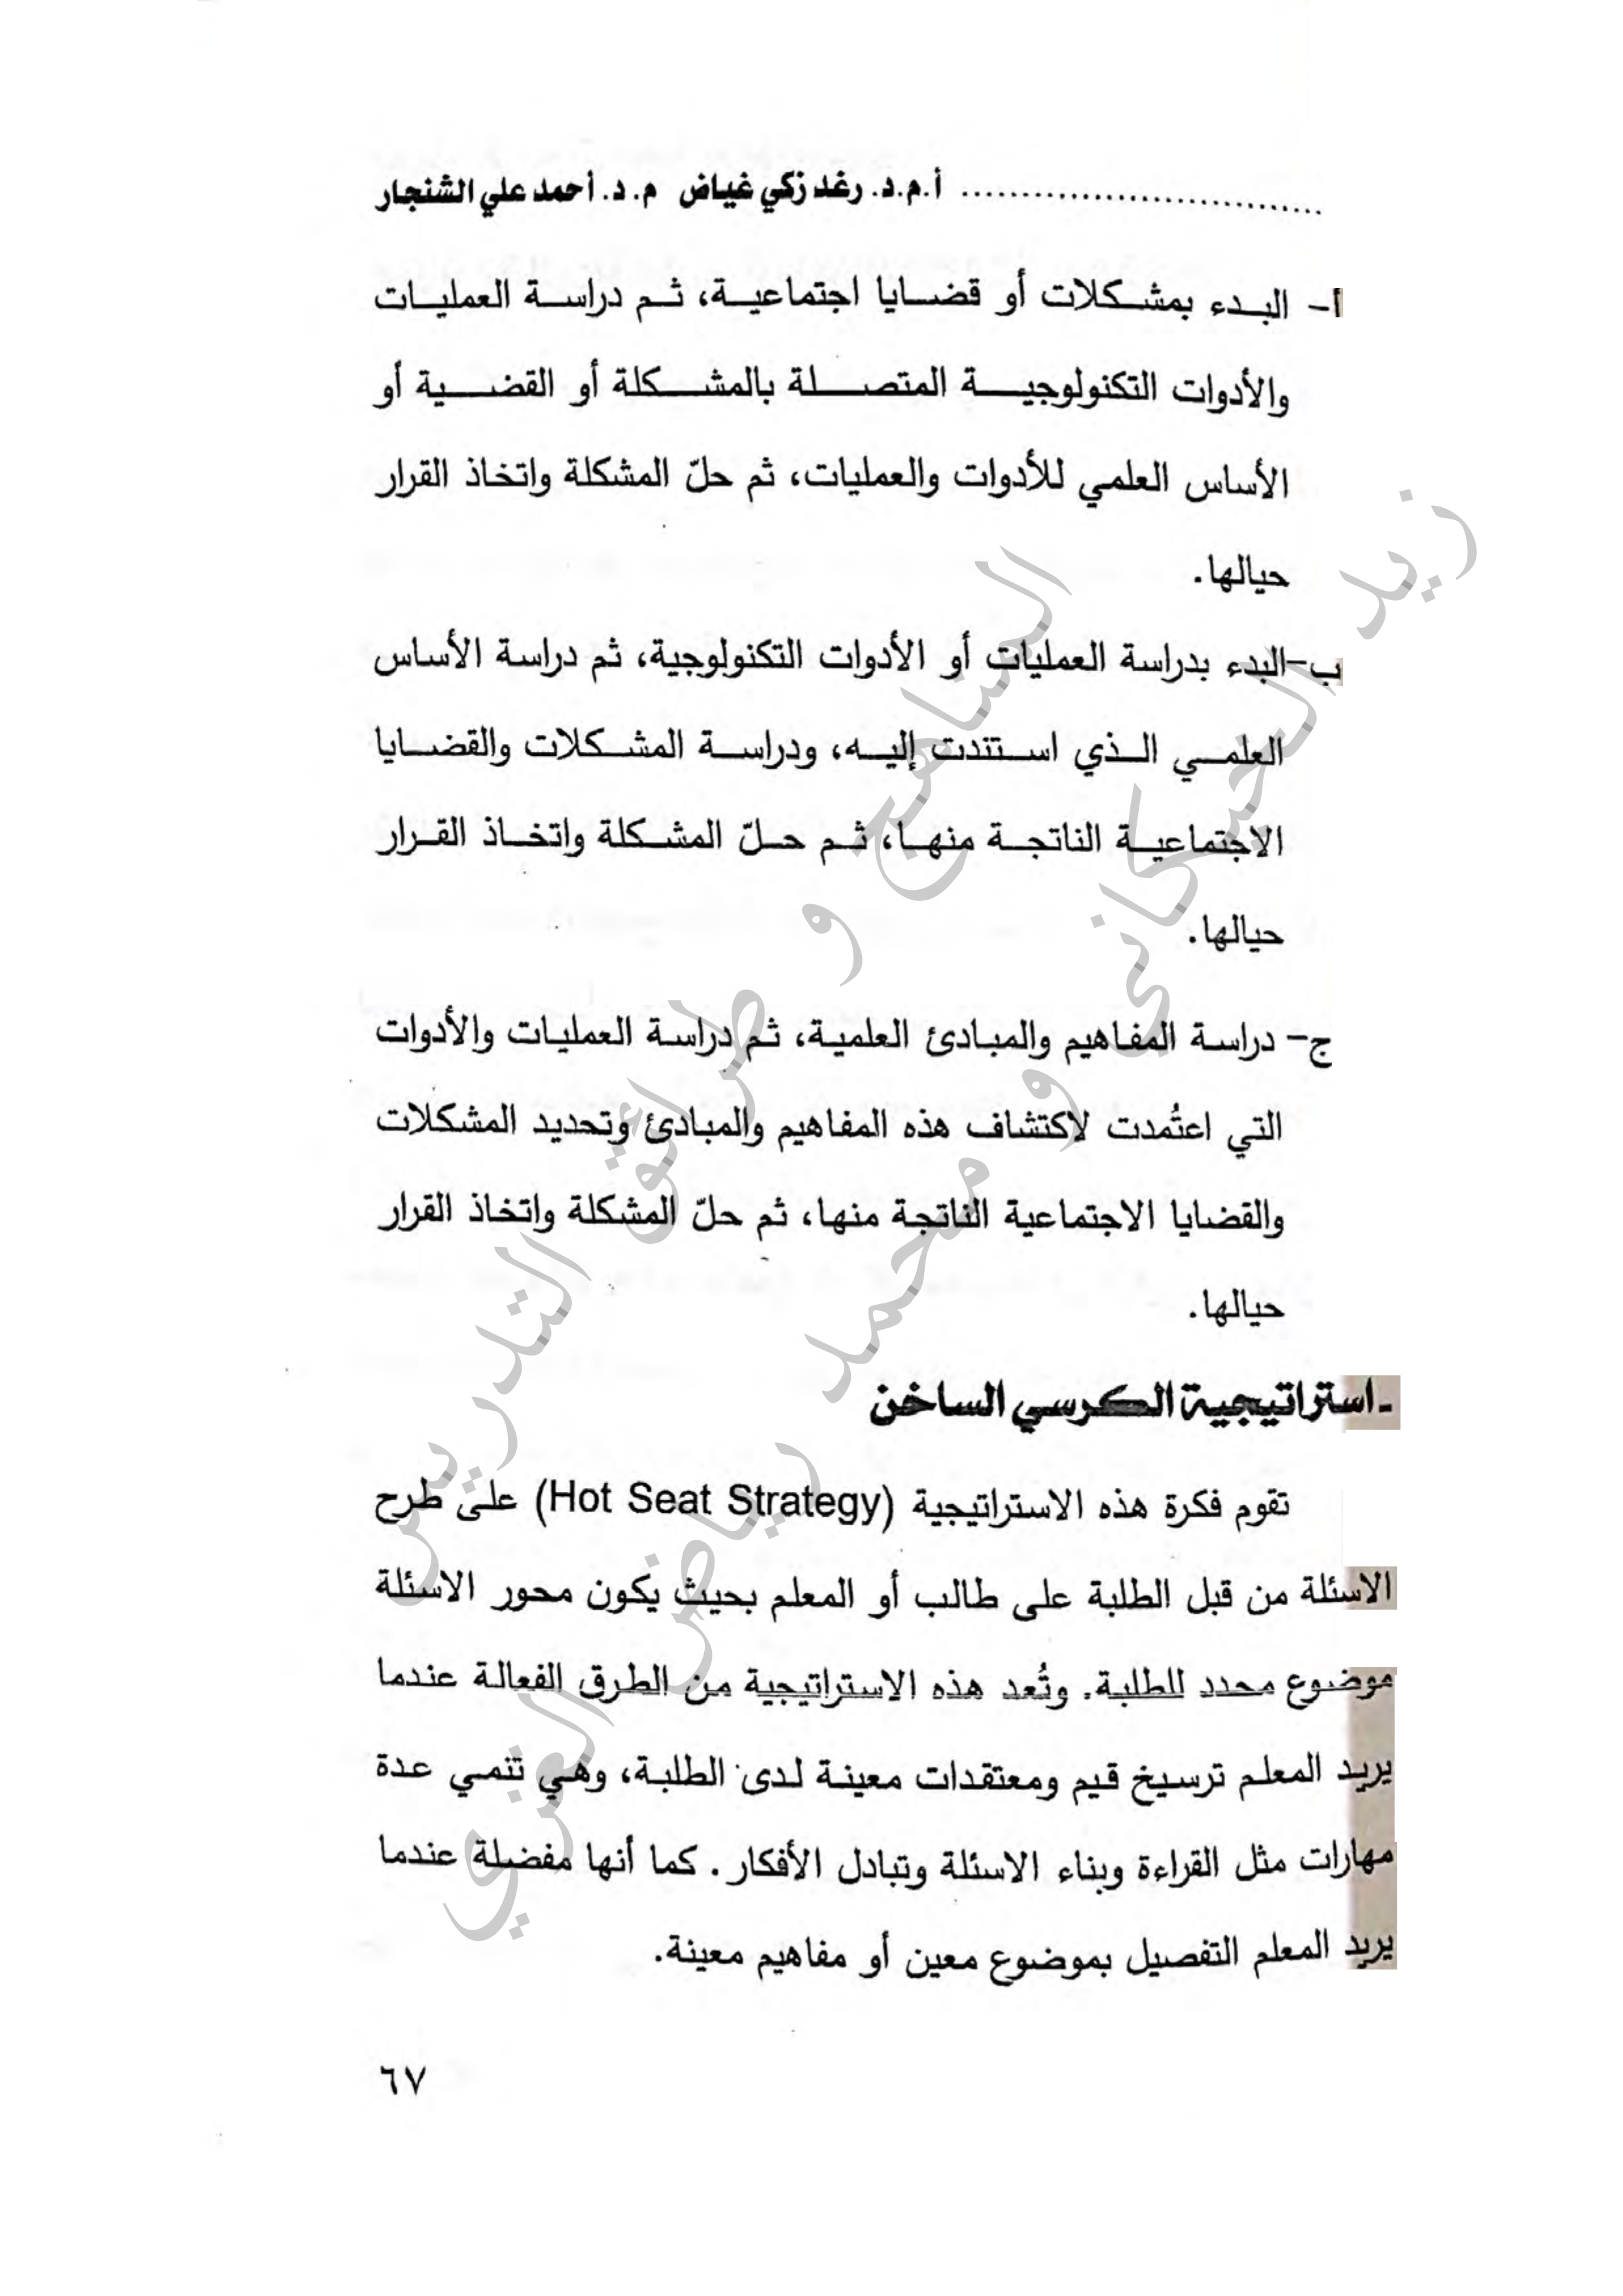 أ.م.د. رغد زكي غياض م. د. أحمد علي الشنجار
أ- البدء بمشكلات أو قضايا اجتماعية، ثم دراسة العمليات
والأدوات التكنولوجية المتصلة بالمشكلة أو القضية أو
الأساس العلمي للأدوات والعمليات، ثم حلّ المشكلة واتخاذ القرار
حيالها.
ب-البدء بدراسة العمليات أو الأدوات التكنولوجية، ثم دراسة الأساس
العلمي الذي استندت إليه، ودراسة المشكلات والقضايا
الاجتماعية الناتجة منها، ثم حلّ المشكلة واتخاذ القرار
حيالها.
ج- دراسة المفاهيم والمبادئ العلمية، ثم دراسة العمليات والأدوات
التي اعتُمدت لاكتشاف هذه المفاهيم والمبادئ وتحديد المشكلات
والقضايا الاجتماعية الناتجة منها، ثم حلّ المشكلة واتخاذ القرار
حيالها.
- استراتيجية الكرسي الساخن
تقوم فكرة هذه الاستراتيجية (Hot Seat Strategy) على طرح
الاسئلة من قبل الطلبة على طالب أو المعلم بحيث يكون محور الاسئلة
موضوع محدد للطلبة. وتُعد هذه الاستراتيجية من الطرق الفعالة عندما
يريد المعلم ترسيخ قيم ومعتقدات معينة لدى الطلبة، وهي تنمي عدة
مهارات مثل القراءة وبناء الاسئلة وتبادل الأفكار. كما أنها مفضلة عندما
يريد المعلم التفصيل بموضوع معين أو مفاهيم معينة.
٦٧
المناهج و طرائق التدريس
زيد الحسكاني و محمد رياض الغزي